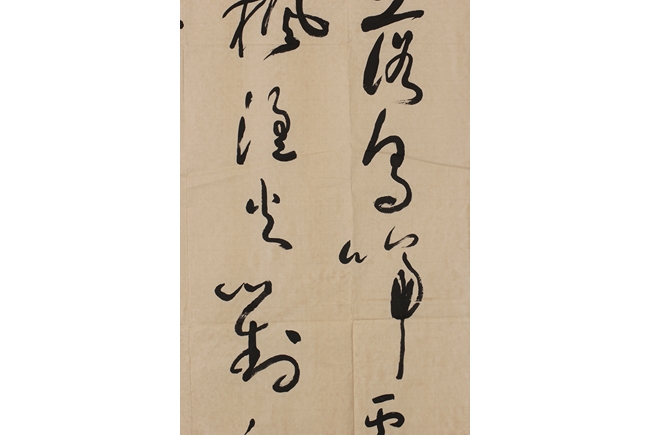 落乌啼
枫渔火对